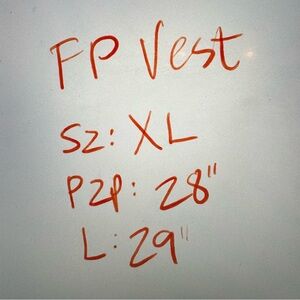 FP Vest
Sz: XL
P2P: 28"
L: 29"